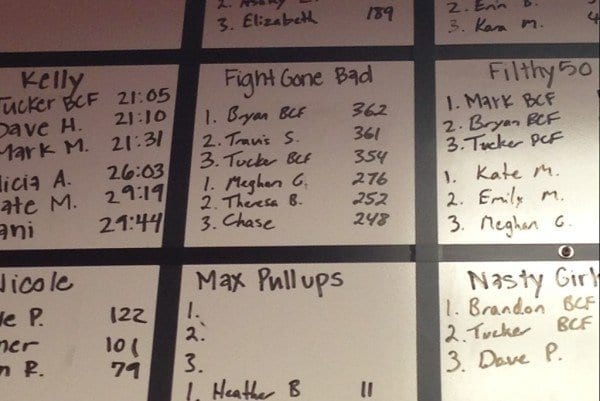 3. Elizabeth 189
2. Erin B.
3. Kara M. 4
Kelly
Tucker BCF 21:05
Dave H. 21:10
Mark M. 21:31
licia A. 26:03
ate M. 29:19
ani 29:44
Fight Gone Bad
1. Bryan BCF 362
2. Travis S. 361
3. Tucker BCF 354
1. Meghan G. 276
2. Theresa B. 252
3. Chase 248
Filthy 50
1. Mark BCF
2. Bryan BCF
3. Tucker BCF
1. Kate M.
2. Emily M.
3. Meghan G.
Nicole
e P. 122
ner 101
n R. 79
Max Pullups
1.
2.
3.
1. Heather B 11
Nasty Girl
1. Brandon BCF
2. Tucker BCF
3. Dave P.